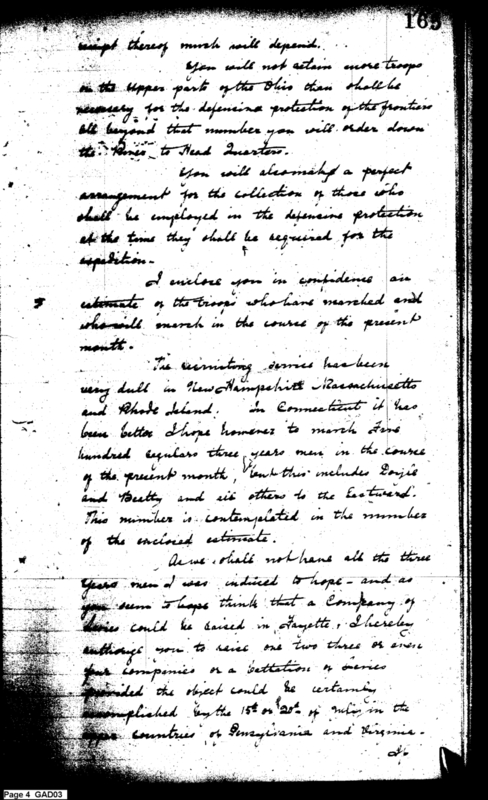 165
receipt thereof much will depend.
You will not retain more troops
on the upper parts of the Ohio than shall be
necessary for the defensive protection of the frontiers
all beyond that number you will order down
the River to Head Quarters.
You will also make a perfect
arrangement for the collection of those who
shall be employed in the defensive protection
at the time they shall be required for the
expedition -
I enclose you in confidence an
estimate of the troops who have marched and
who will march in the course of the present
month.
The recruiting service has been
very dull in New Hampshire Massachusetts
and Rhode Island. In Connecticut it has
been better I hope however to march five
hundred regulars three years men in the course
of the present month, but this includes Doyle
and Beatty and all others to the Eastward.
This number is contemplated in the number
of the enclosed estimate.
As we shall not have all the three
years men I was induced to hope - and as
you seem to hope think that a Company of
levies could be raised in Fayette, I hereby
authorize you to raise one two three or even
four companies or a battalion of levies
provided the object could be certainly
accomplished by the 15th or 20th of July in the
upper countries of Pensylvania and Virginia -
If
Page 4 GAD03